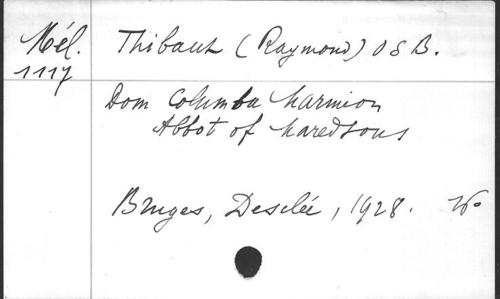 Mél. Thibaut (Raymond) O S B.
1117
Dom Columba Marmion
Abbot of Maredsous
Bruges, Desclée, 1928.